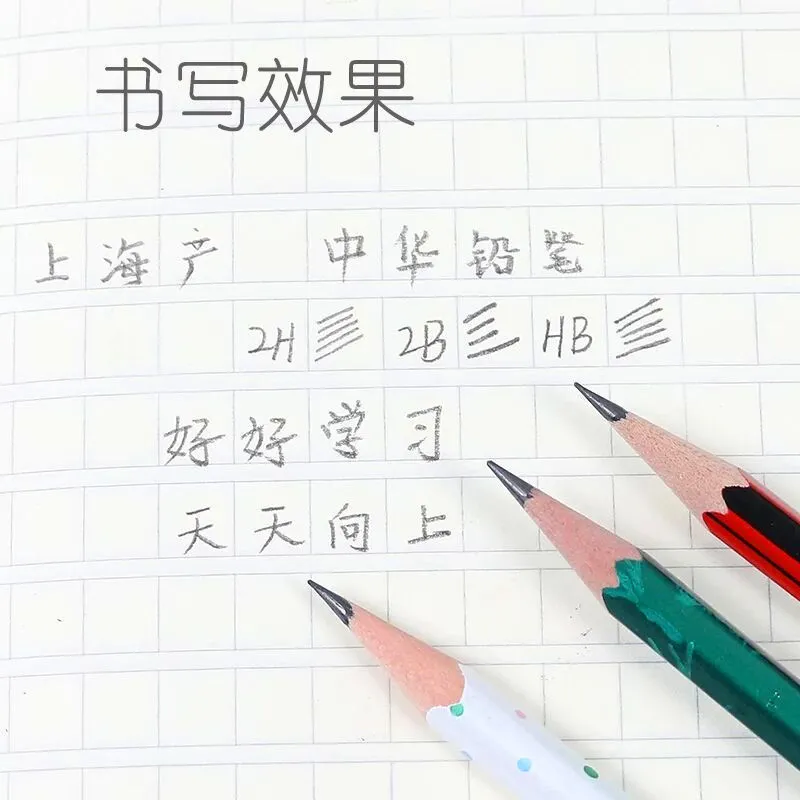 书写效果
上海产 中华铅笔
2H 2B HB
好好学习
天天向上